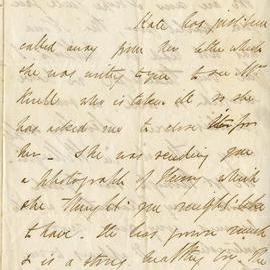 Kate has just been
called away from her letter which
she was writing to you to see Mrs
Knell who is taken ill so she
has asked me to close this for
her. She was sending you
a photograph of Henry which
she thought you might like
to have. He has grown much
& is a strong healthy boy. The